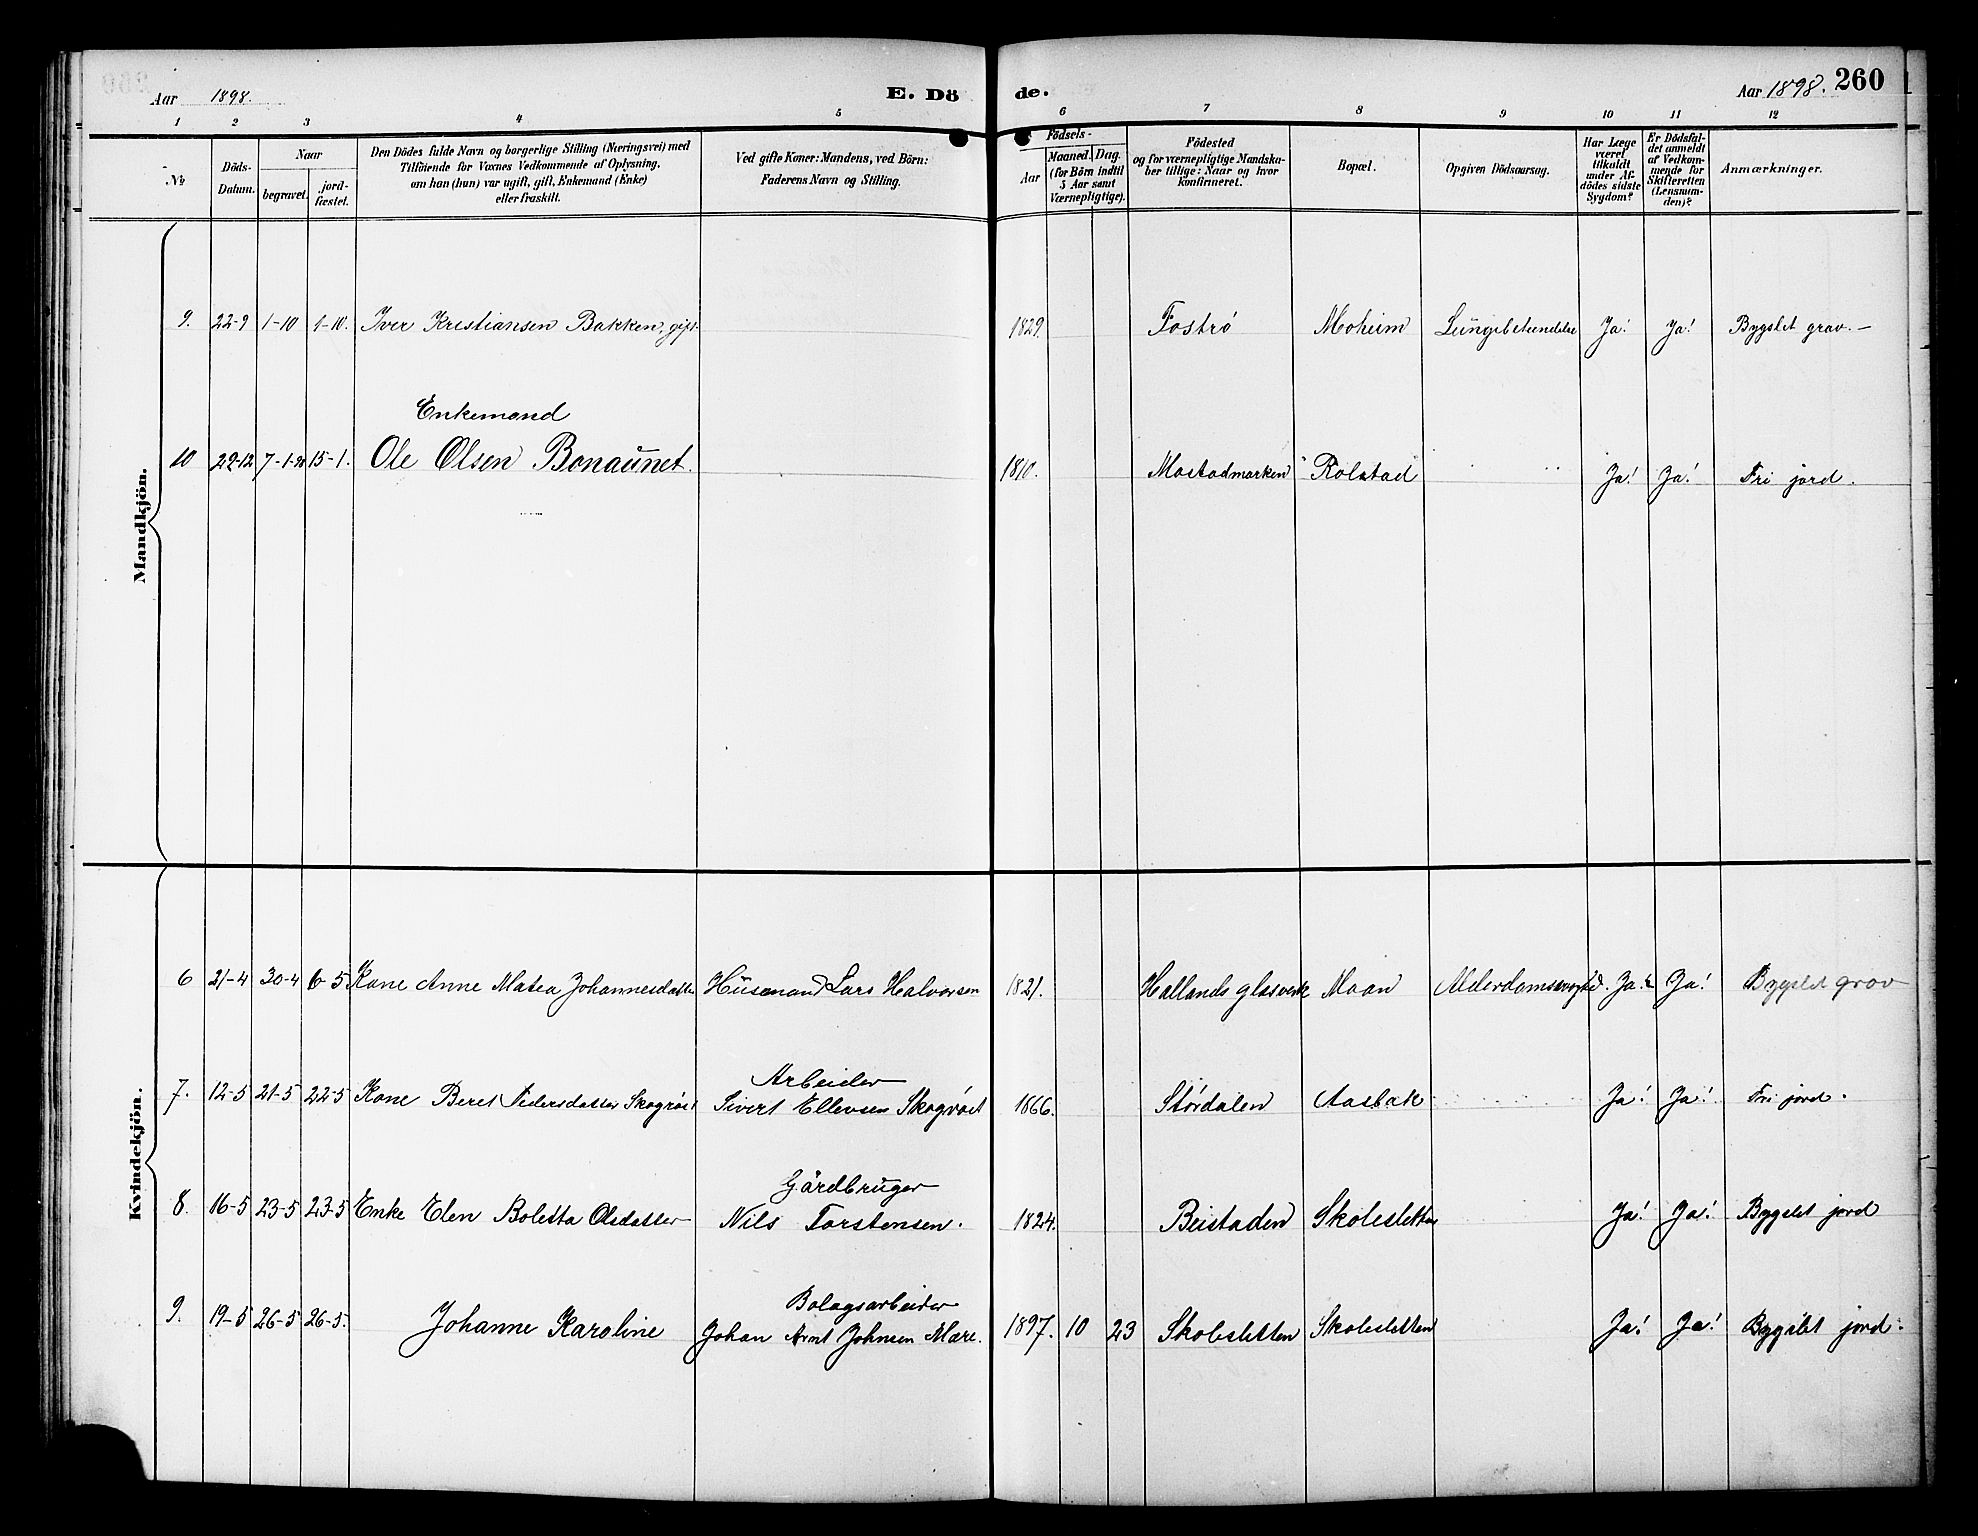 Aar 1898. E. Dö de. Aar 1898. 260
1 2 3 4 5 6 7 8 9 10 11 12
No
Döds-Datum.
Naar
begravet. jord-fæstet.
Den Dödes fulde Navn og borgerlige Stilling (Næringsvei) med
Tilföiende for Voxnes Vedkommende af Oplysning,
om han (hun) var ugift, gift, Enkemand (Enke)
eller fraskilt.
Ved gifte Koner: Mandens, ved Börn:
Faderens Navn og Stilling.
Födsels-
Aar Maaned. Dag.
(for Börn indtil
5 Aar samt
Værnepligtige).
Födested
og for værnepligtige Mandska-
ber tillige: Naar og hvor
konfirmeret.
Bopæl.
Opgiven Dödsaarsag.
Har Læge
været
tilkaldt
under Af-
dödes sidste
Sygdom?
Er Dödsfal-
det anmeldt
af Vedkom-
mende for
Skifteretten
(Lensman-
den)?
Anmærkninger.
Mandkjön.
9. 22-9 1-10 1-10. Iver Kristiansen Bakken, gift. 1829. Foströ Moheim Lungebetændelse Ja! Ja! Bygslet grav.—
Enkemand
10 22-12 7-1-99 15-1. Ole Olsen Bonaunet. 1810. Mostadmarken Rolstad Ja! Ja! Fri jord.
Kvindekjön.
6 21-4 30-4 6-5 Kone Anne Matea Johannesdatter Husmand Lars Halvorsen 1821. Hallands glasverk Moan Alderdomssvaghed. Ja! Ja! Bygslet grav
Arbeider
7. 12-5 21-5 22-5 Kone Beret Pedersdatter Skogröst Sivert Ellevsen Skogröst 1866. Stördalen Aasbak Ja! Ja! Fri jord.
Gårdbruger
8. 16-5 23-5 23-5 Enke Elen Boletta Olsdatter Nils Torstensen. 1824. Beistaden Skolesletten Ja! Ja! Bygslet jord
Bolagsarbeider
9. 19-5 26-5 26-5. Johanne Karoline Johan Arnt Johnsen Mære. 1897. 10 23 Skolesletten Skolesletten Ja! Ja! Bygslet jord.